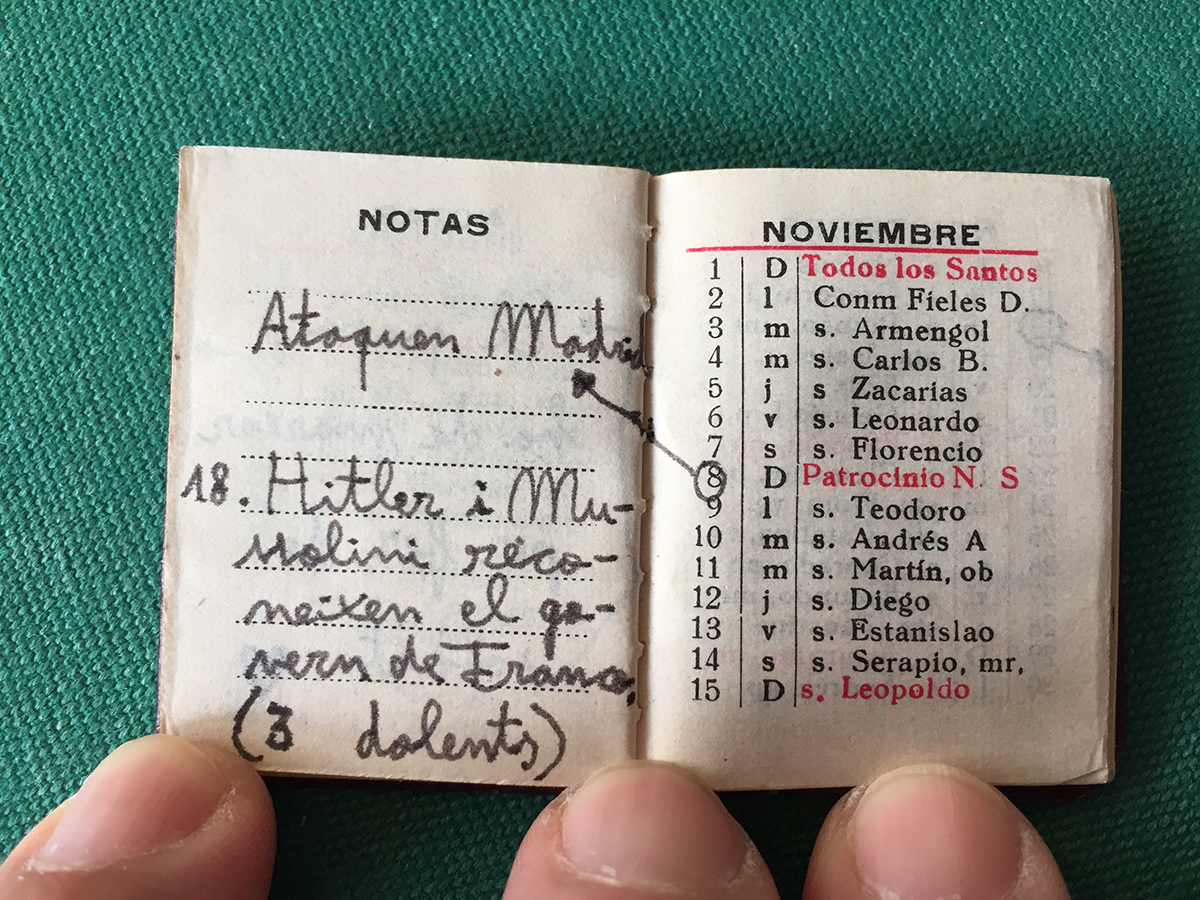 NOTAS
Ataquen Madrid
18. Hitler i Mu-
ssolini reco-
neixen el go-
vern de Franco.
(3 dolents)
NOVIEMBRE
1 D Todos los Santos
2 l Conm Fieles D.
3 m s. Armengol
4 m s. Carlos B.
5 j s Zacarias
6 v s. Leonardo
7 s s. Florencio
8 D Patrocinio N. S
9 l s. Teodoro
10 m s. Andrés A
11 m s. Martín, ob
12 j s. Diego
13 v s. Estanislao
14 s s. Serapio, mr,
15 D s. Leopoldo